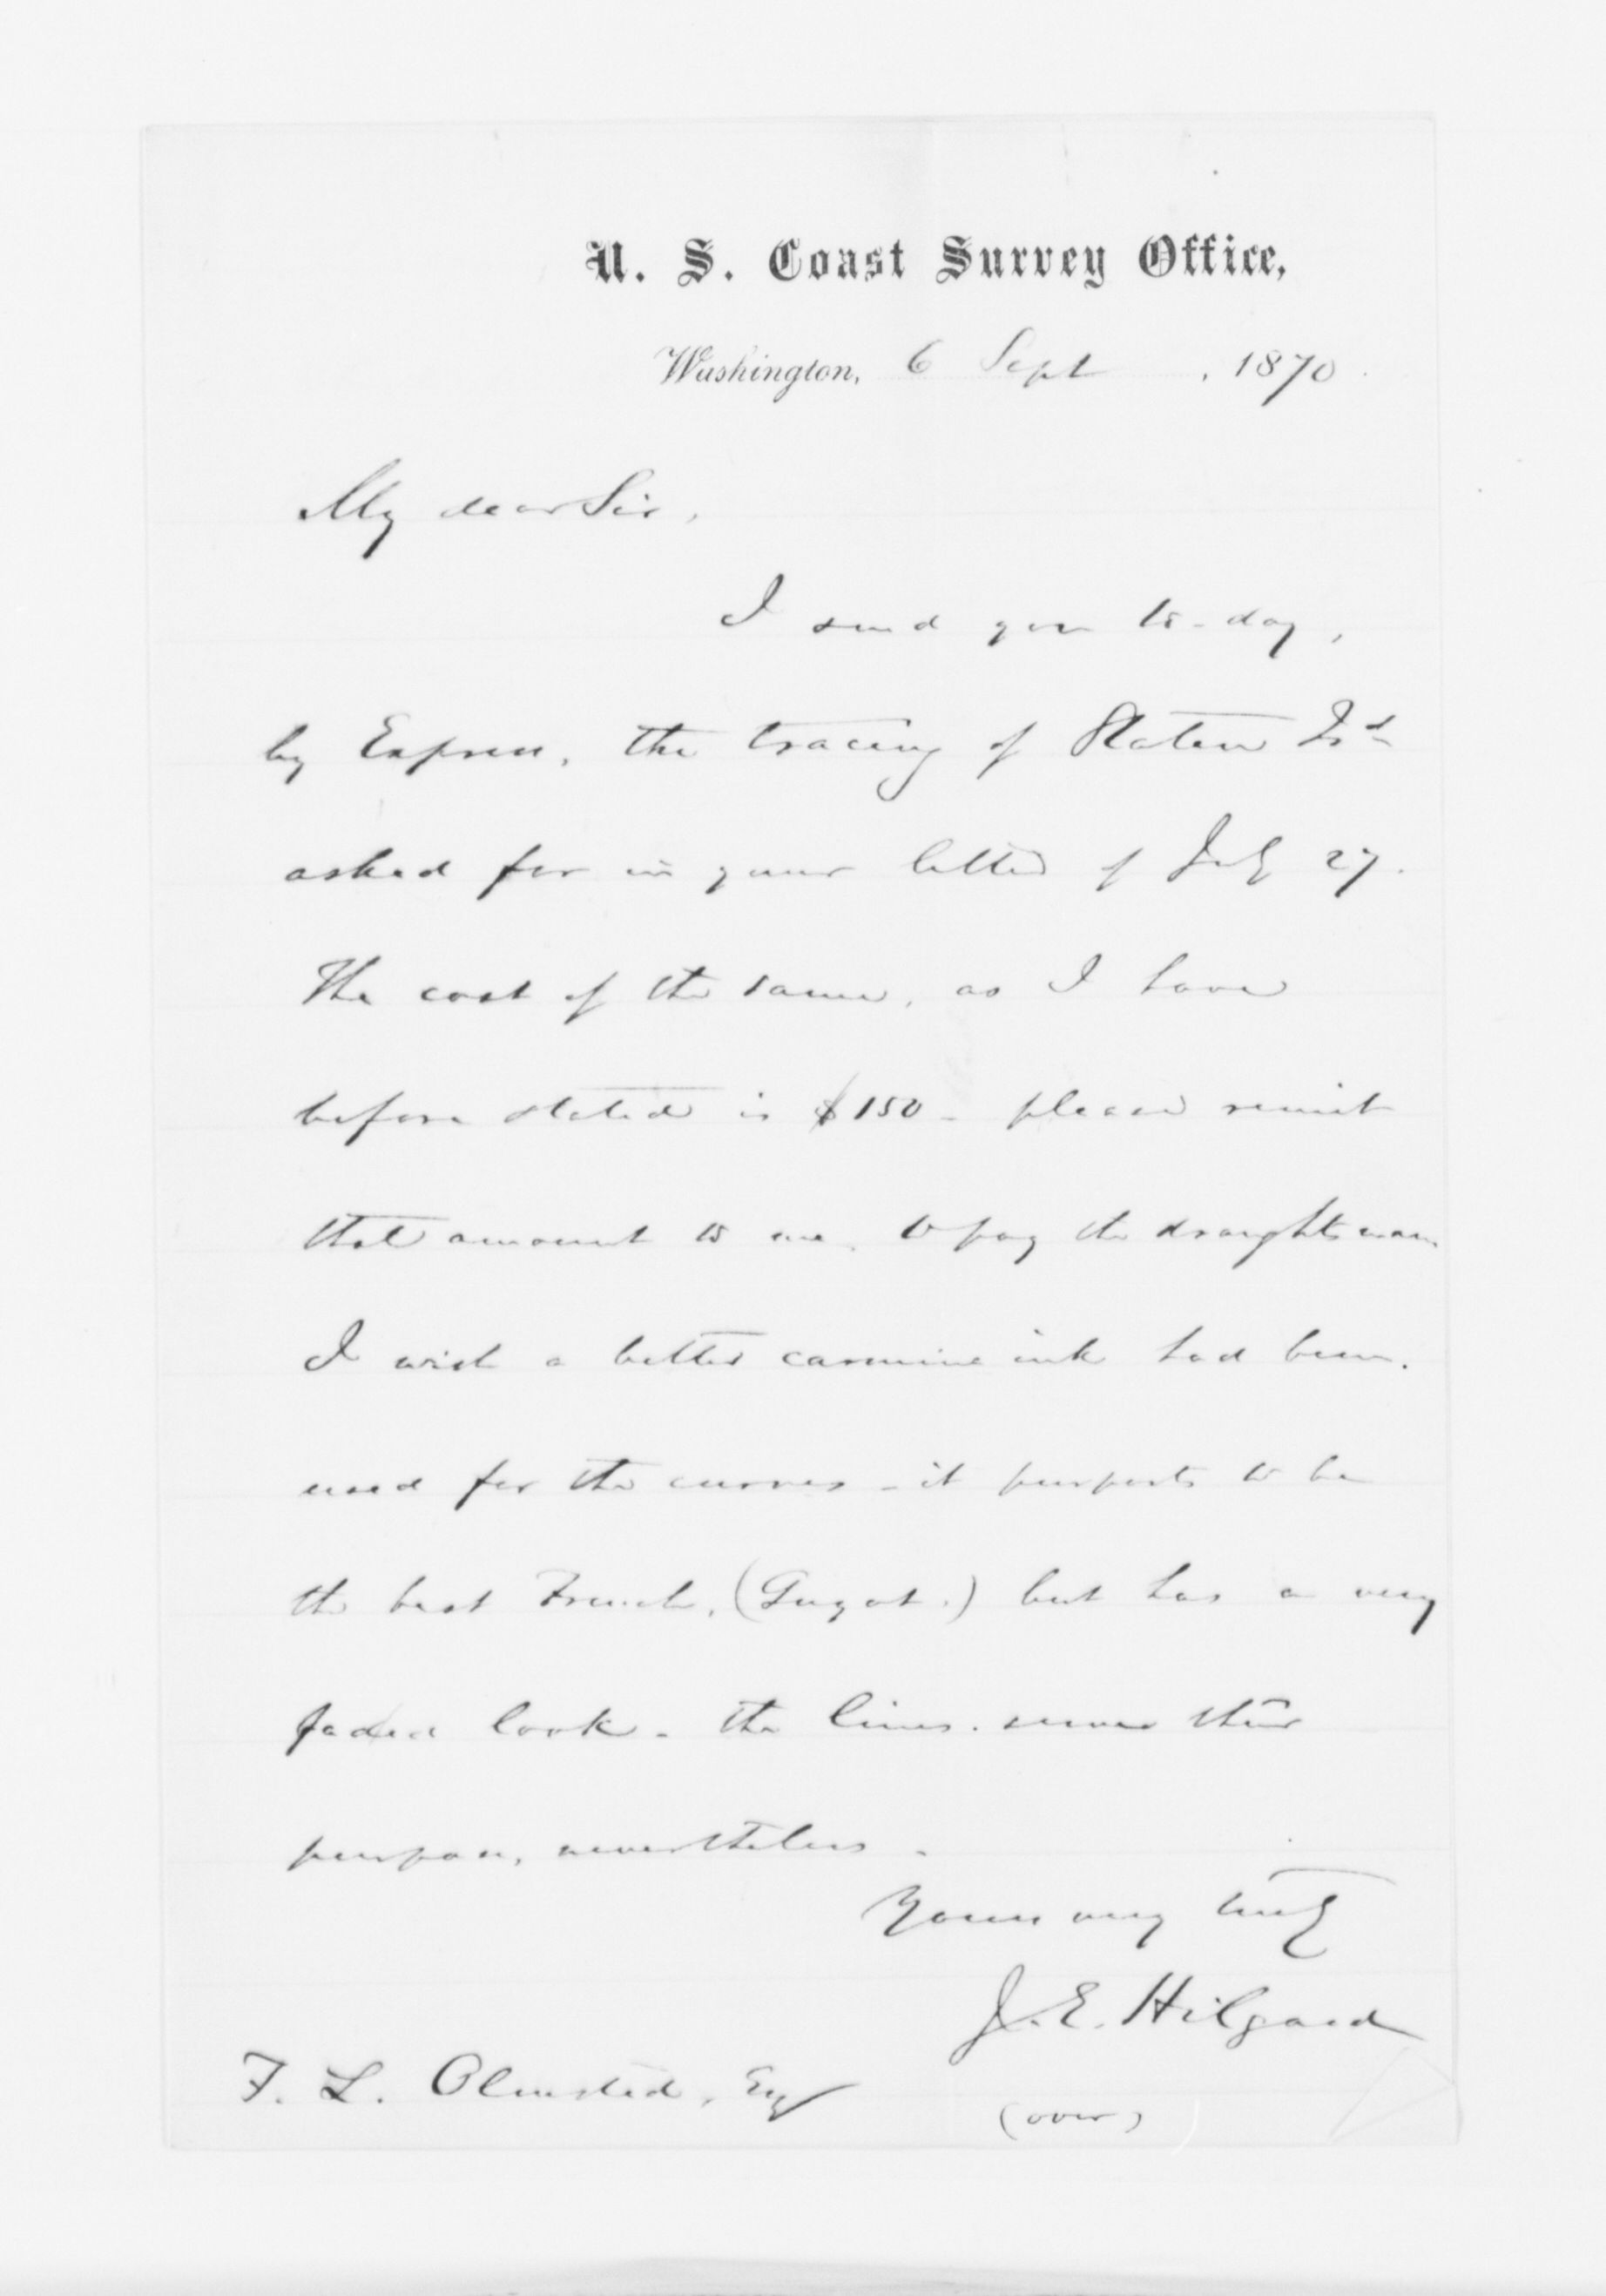 U. S. Coast Survey Office,
Washington, 6 Sept , 1870.
My dear Sir,
I send you to-day,
by Express, the tracing of Staten Isd
asked for in your letter of July 27.
The cost of the same, as I have
before stated is $150 - please remit
that amount to me, to pay the draughtsman
I wish a better carmine ink had been
used for the curves - it purports to be
the best French, ( ) but has a very
faded look - the lines serve their
purpose, nevertheless.
Yours very truly
J. E. Hilgard
F. L. Olmsted, Esq
(over)